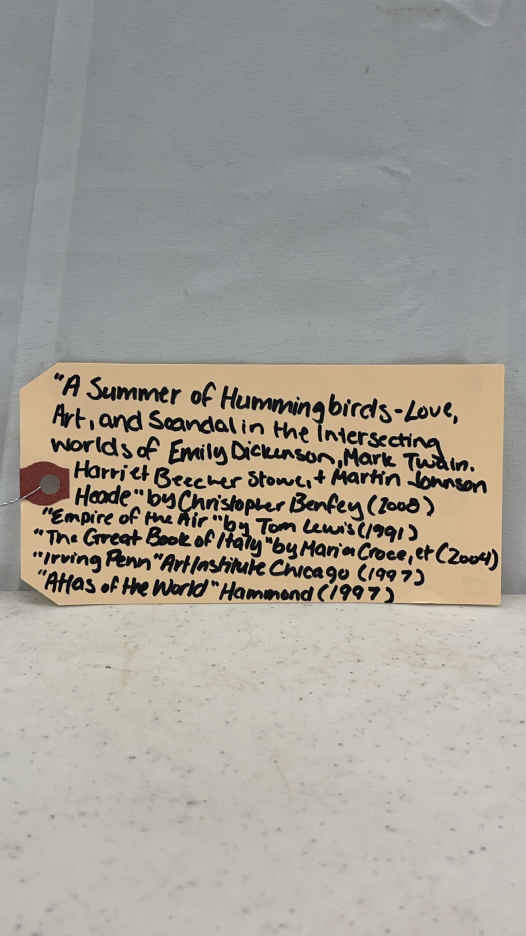 "A Summer of Hummingbirds-Love,
Art, and Scandal in the Intersecting
Worlds of Emily Dickenson, Mark Twain.
Harriet Beecher Stowe, + Martin Johnson
Heade" by Christopher Benfey (2008)
"Empire of the Air" by Tom Lewis (1991)
"The Great Book of Italy" by Maria Croce, et (2004)
"Irving Penn" Art Institute Chicago (1997)
"Atlas of the World" Hammond (1997)